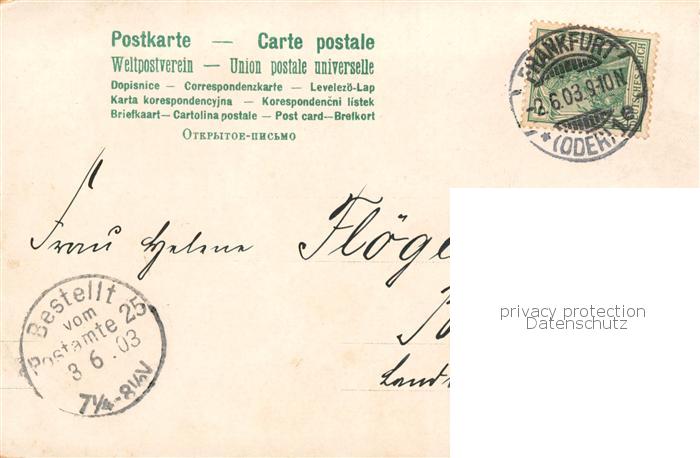 Postkarte — Carte postale
Weltpostverein — Union postale universelle
Dopisnice — Correspondenzkarte — Levelező-Lap
Karta korespondencyjna — Korespondenční lístek
Briefkaart — Cartolina postale — Post card — Brefkort
Открытое-письмо
FRANKFURT
-2.6.03.9-10N.
*(ODER)*
DEUTSCHES REICH
Frau Helene Flöge
Bestellt
vom
Postamte 25
3 6 .03
7¼-8½V
privacy protection
Datenschutz